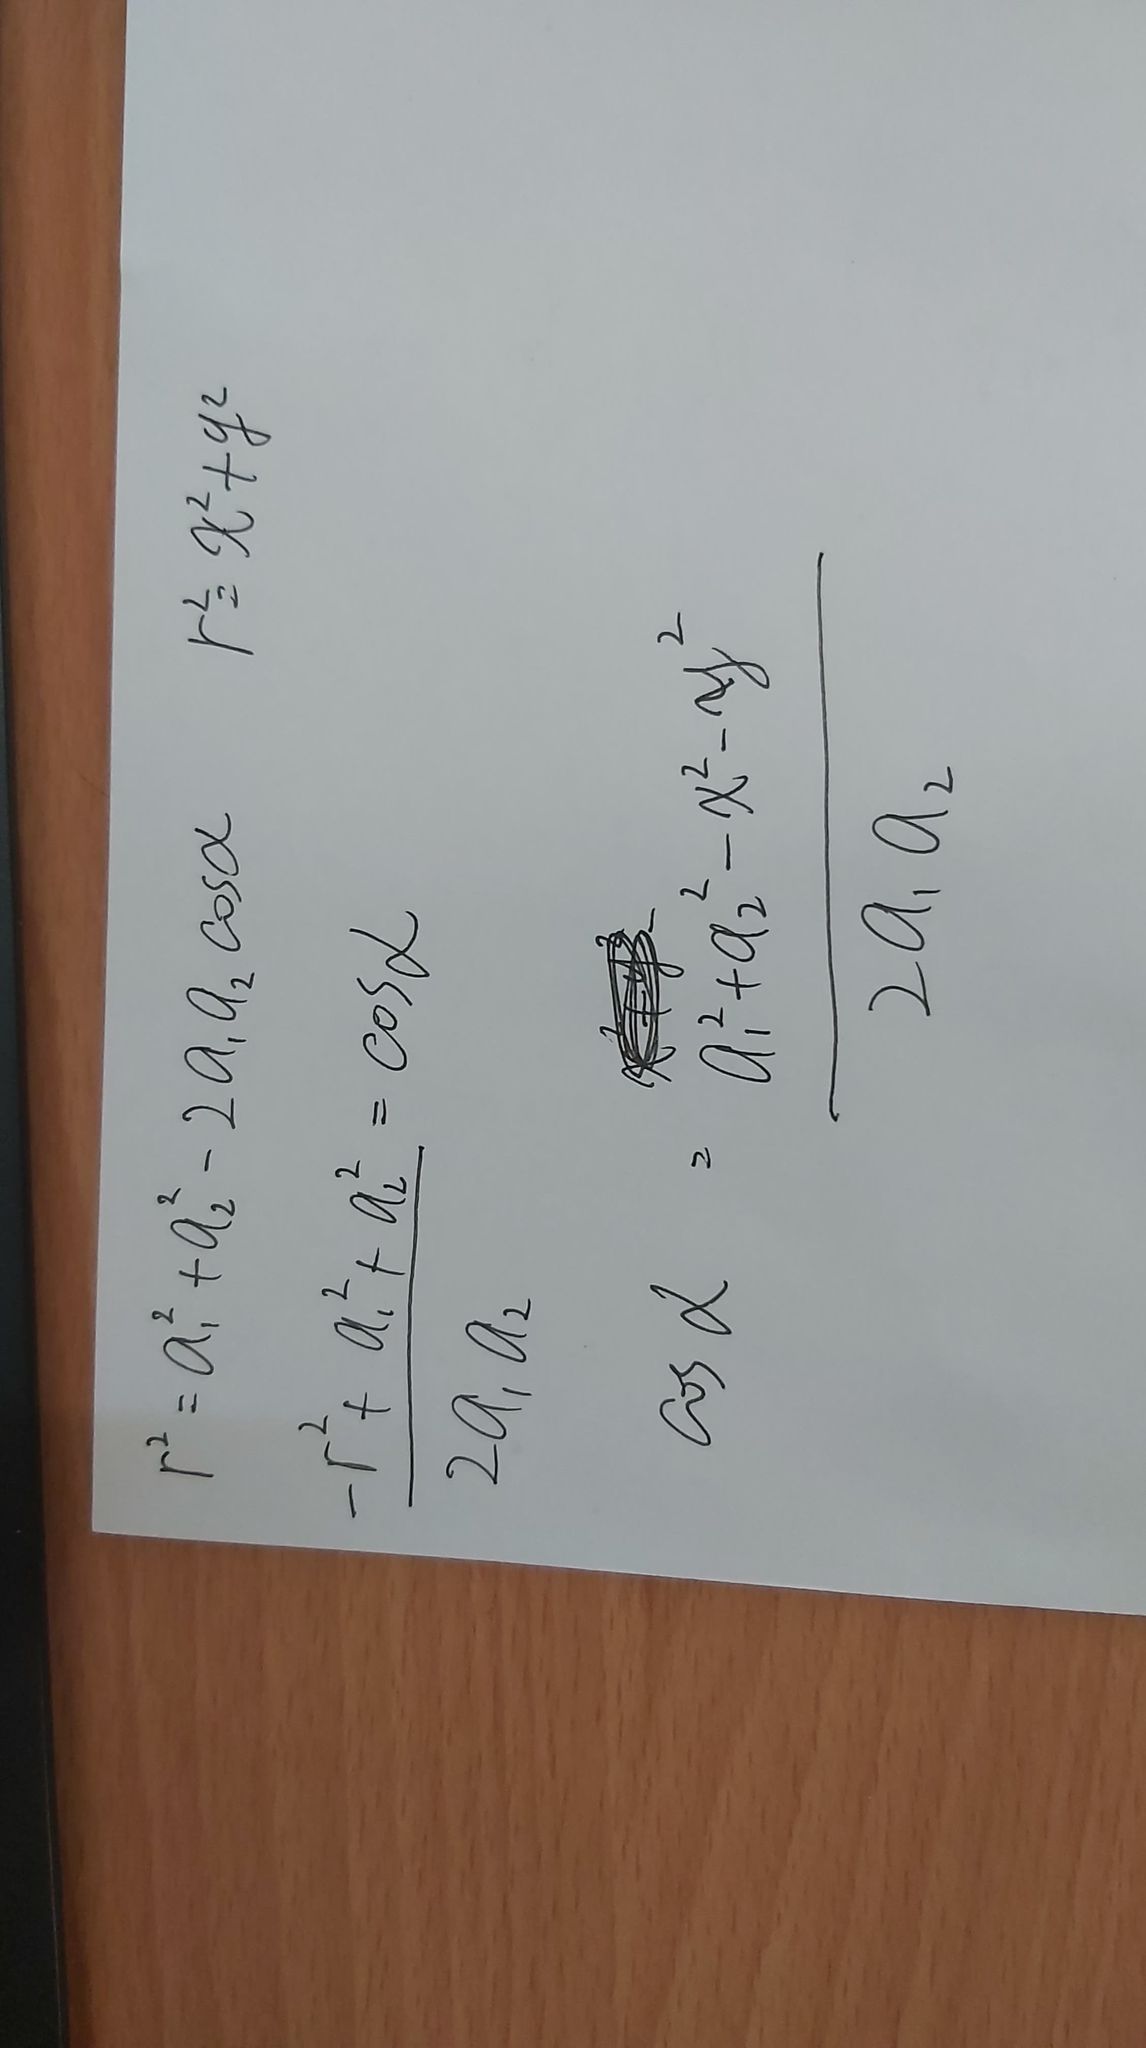 r² = a₁² + a₂² - 2a₁a₂ cosα r² = x² + y²
-r² + a₁² + a₂² = cosα
2a₁a₂
cosα = a₁² + a₂² - x² - y²
2a₁a₂